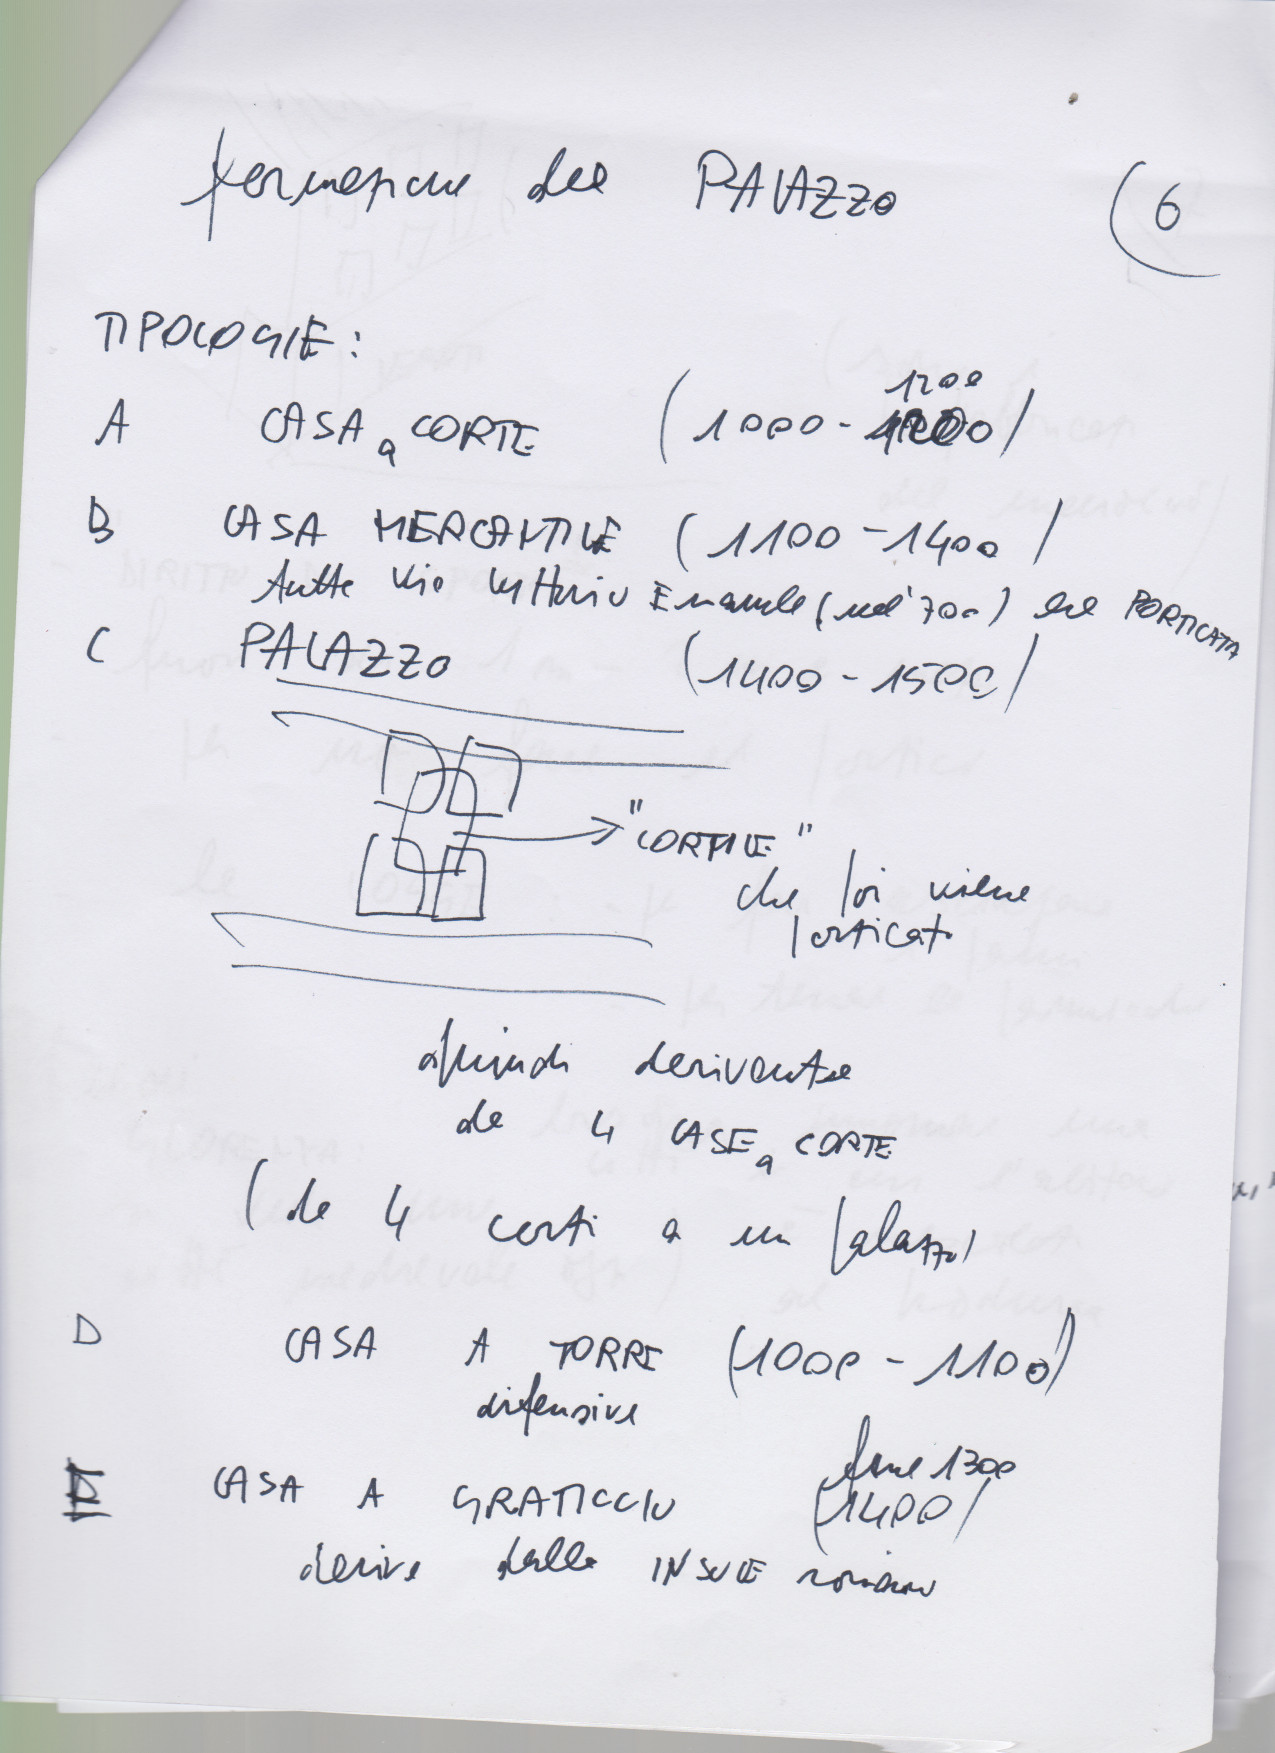 formazione del PALAZZO
6
TIPOLOGIE:
A CASA a CORTE (1000-1200)
B CASA MERCANTILE (1100-1400)
tutta via Vittorio Emanuele (nel '700) era PORTICATA
C PALAZZO (1400-1500)
"CORTILE"
che poi viene
porticato
quindi
da 4 CASE a CORTE
(da 4 corti a un palazzo)
D CASA A TORRE (1000-1100)
difensive
fine 1300
CASA A GRATICCIO (1400)
deriva dalle INSULE romane